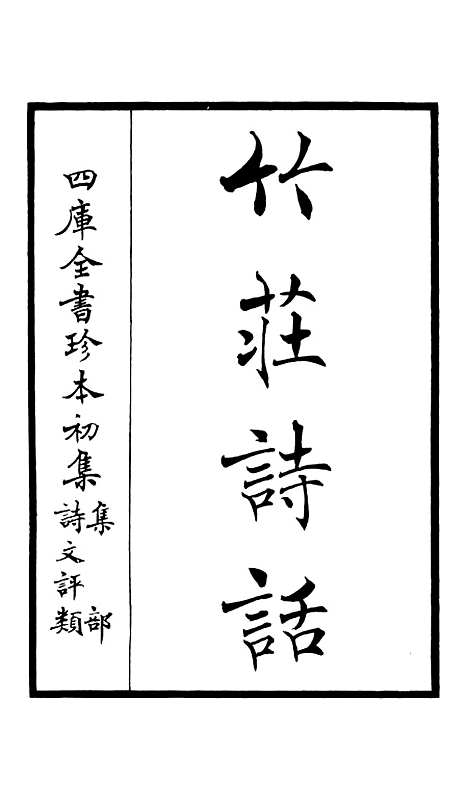 竹莊詩話
四庫全書珍本初集
集部
詩文評類